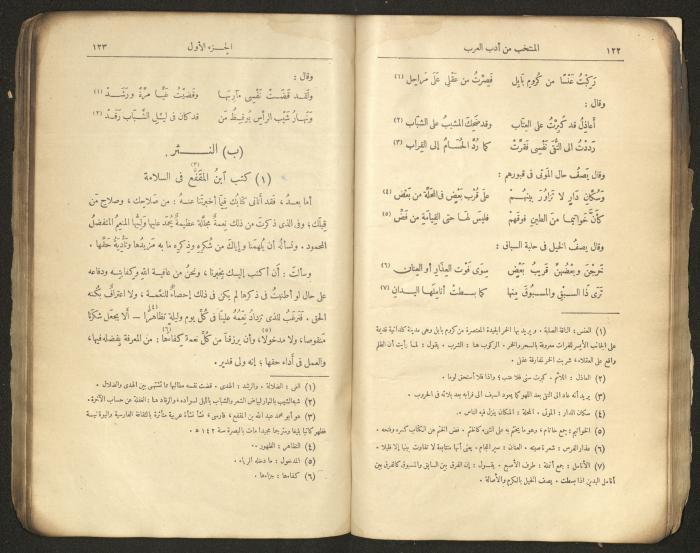 ١٢٢
المنتخب من أدب العرب
رَكِبْتُ عَنْسًا من كُرومِ بَابِلِ فَصِرْتُ من عَقْلِي عَلَى مَرَاحِلِ (١)
وقال :
أعَاذِلُ قد كَبِرْتُ على العِتَابِ وقد ضَحِكَ المشيبُ على الشبَابِ (٢)
رددتُ إلى التُّقَى نَفْسِي فَقَرَّتْ كما رُدَّ الحُسَامُ إلى القِرابِ (٣)
وقال يَصفُ حال الموتى في قبورهم :
وسُكَّانِ دارٍ لا تَزَاوُرَ بينهُمْ على قُربِ بَعْضٍ في المَحَلَّة من بَعْضِ (٤)
كأنَّ خواتيمًا من الطين فوقَهُمْ فليس لها حتى القِيامَةِ من فَضِّ (٥)
وقال يصفُ الخيل في حلبة السباق :
خَرَجْنَ وبَعْضُهُنَّ قريبُ بَعْضٍ سِوَى فَوْت العِذَارِ أو العِنَانِ (٦)
تَرَى ذا السبْقِ والمسبُوقَ منها كما بسطتْ أناملَها اليدانِ (٧)
(١) العنس : الناقة الصلبة . ويريد بها الخمر الجيدة المعتصرة من كروم بابل وهي مدينة كلدانية قديمة
على الجانب الأيسر للفرات معروفة بالسحر والخمر . الركوب هنا : الشرب . يقول : لما رأيت أن الظلم
واقع على العقلاء شربت الخمر لمفارقة عقلي .
(٢) العاذل : اللائم . كبرت سنى فلا عتب ؛ وإذا فلا أستحق لوما .
(٣) يريد أنه عاد الى التقى بعد اللهو كما يعود السيف الى قرابه بعد بلائه في الحروب .
(٤) سكان الدار : الموتى . المحلة : المكان ينزل فيه الناس .
(٥) الخواتيم : جمع خاتام ، وهو ما يختم به على الشيء كالخاتم . فض الختم عن الكتاب كسره وفتحه .
(٦) عذار الفرس : شعر ناصيته . العنان : سير اللجام . يعنى أنها متقاربة لا تفاوت بينها إلا قليلا .
(٧) الأنامل : جمع أنملة : طرف الأصبع . يقــول : إن الفرق بين السابق والمسبوق كالفرق بين
أنامل اليدين اذا بسطت . يصف الخيل بالكرم والأصالة .
الجزء الأول
١٢٣
وقال :
ولقد قَضَتْ نَفْسِي مَآرِبَهَا وقَضَيْتُ غَيًّا مَرَّةً ورَشَدْ (١)
ونَهَارُ شَيْبِ الرأسِ يُوقِظُ مَنْ قد كان في لَيْلِ الشَّبَابِ رَقَدْ (٢)
(ب) النــثر .
(١) كتب ابنُ المقفَّع (٣) في السلامة
أما بعــد ، فقد أتانى كتابُك فيما أخبرتَنا عنه : من صلاحِك ، وصلاحِ مَن
قِبَلَك ؛ وفي الذى ذكرتَ من ذلك نِعمةٌ مُجلِّلة عظيمةٌ يُحمَد عليها وَلِيُّها المنعمُ المتفضلُ
المحمود . ونسأله أن يُلهمَنا وإياكَ من شُكرِهِ وذِكرِهِ ما به مَزيدُها وتأديَةُ حَقِّها .
وسألتَ : أن أكتب إليك بخبرِنا ، ونحنُ من عافيــة اللهِ وكفايتِه ودفاعه
على حالٍ لو أطنبتُ في ذكرها لم يكن في ذلك إحصاءٌ للنعمة ، ولا اعترافٌ بكُنه
الحق . فنَرغَبُ للذى تزدادُ نِعَمُهُ علينا فى كُلِّ يومٍ وليلةٍ تَظاهُرًا (٤) — ألّا يجعلَ شكرَنا
منقوصا ، ولا مدخولًا (٥) ، وأن يرزقنا مع كلِّ نعمةٍ كِفاءَها (٦) : من المعرفة بفضله فيها ،
والعمل فى أداء حقها ؛ إنه ولىٌّ قدير .
(١) الغى : الضلالة . والرشد : الهدى . قضت نفسه مطالبها وما تشتهى بين الهدى والضلال .
(٢) شبه الشيب بالنهار لبياض الشعر والشباب بالليل لسواده ، والرقاد هنا : الغفلة عن حساب الآخرة .
(٣) هو أبو محمد عبد الله بن المقفع ، فارسى نشأ نشأة عربية متأثرة بالثقافة الفارسية واليونانية
فظهر كاتبا بليغا ومترجما مجيدا مات بالبصرة سنة ١٤٢ ه .
(٤) التظاهر : الظهور .
(٥) المدخول : ما دخله الرياء .
(٦) كفاءها : جزاءها .